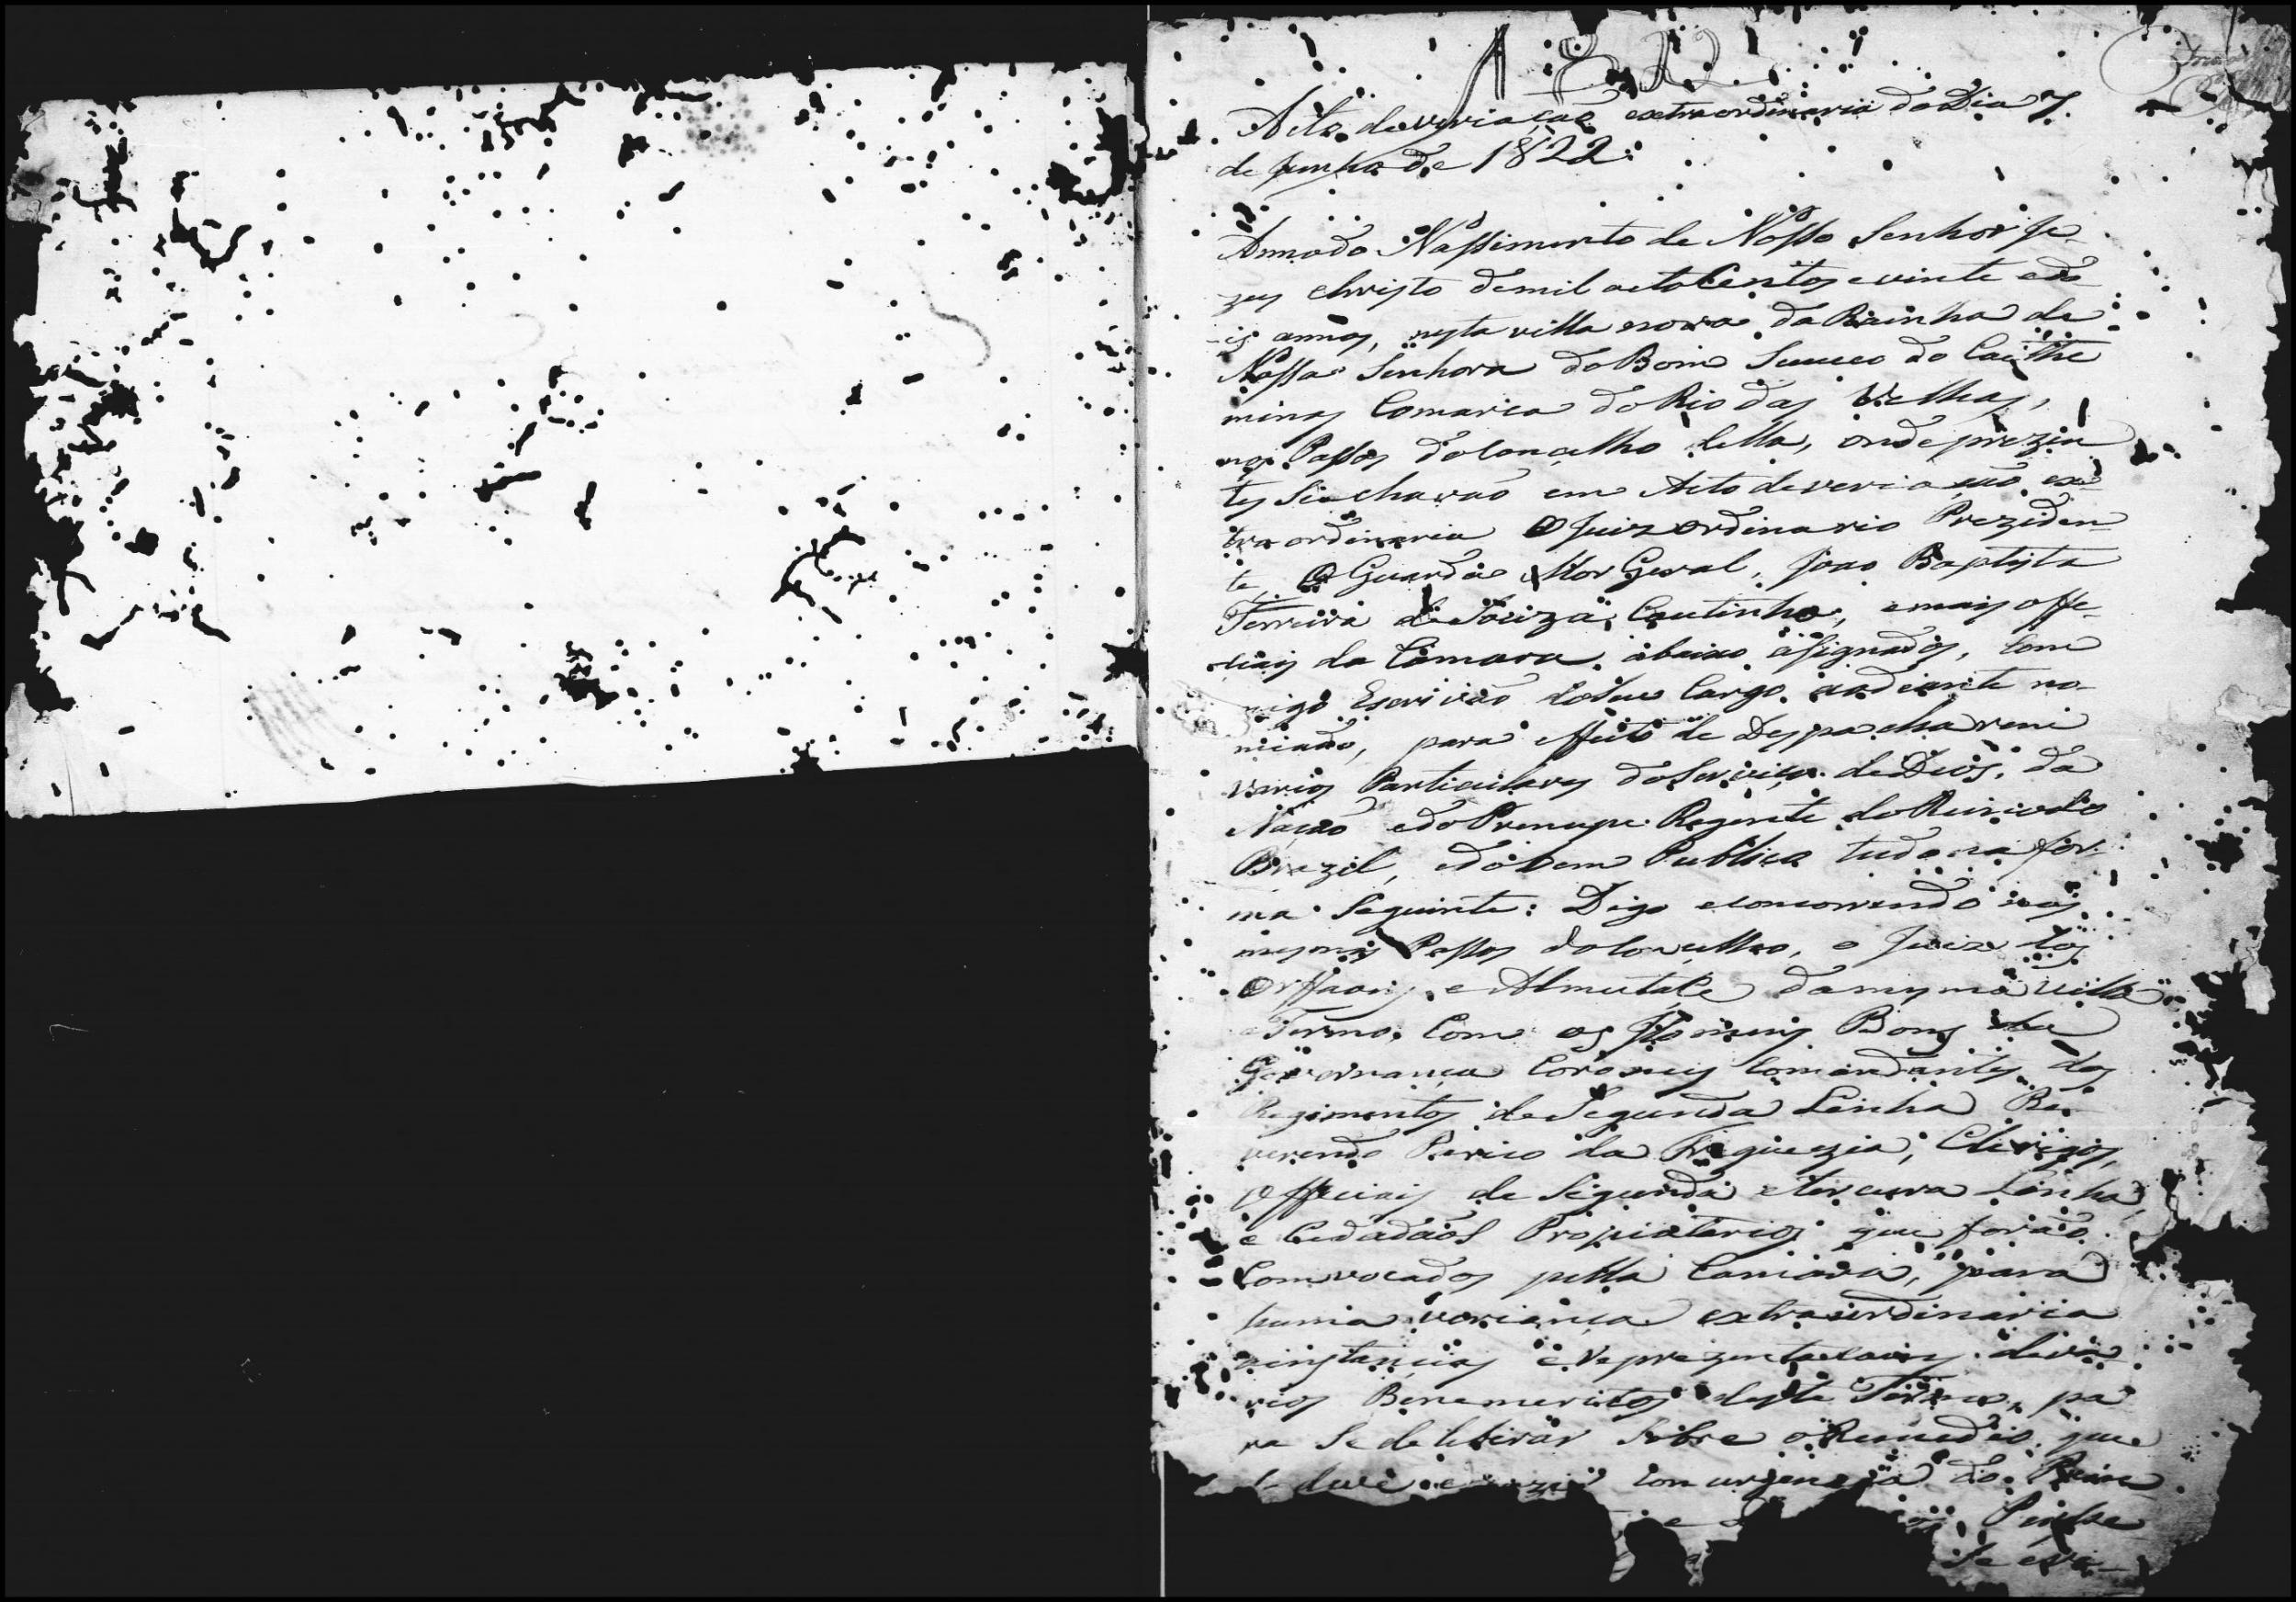 1822
Acto de veriação extraordinaria do Dia 7
de Junho de 1822.
Anno do Nassimento de Nosso Senhor Je-
zus Christo de mil oito Centos e vinte e do
is annos, nesta villa nova da Rainha de
Nossa Senhora do Bom Sucuço do Caithe
minas Comarca do Rio das Velhas,
nos Passos do Concelho della, onde prezen
tes Se acharaõ em Acto de veriação ex
tra ordinaria O Juiz ordinario Preziden
te O Guarda Mor Geral, Joao Baptista
Ferreira de Souza Coutinho, e mais offe-
ciais da Camara abaixo asignados, Com
migo Escrivaõ do Seu Cargo aodiante no-
miado, para effeito de Despacharem
varios Particulares do Serviço de Deos, da
Naçaõ e do Prencepe Regente do Reino do
Brazil, e do bem Publico tudo na for-
ma Seguinte: Digo e concorrendo nos
mesmos Passos do Concelho, o Juiz dos
Orffaons, e Almutace da mesma villa
e Termo, Com os Homens Bons da
Governança Coroneis Comandantes dos
Regimentos de Segunda Linha Re-
verendo Paroco da Freguezia, Clerigos,
Officiais de Segunda e terceira Linha,
e Cidadãos Propiatarios que foraõ
Comvocados pella Camara, para
huma veriança extraordinaria
a instancias e Reprezentacoens de va
rios Benemeritos deste Termo, pa
ra Se deliberar Sobre o Remedio que
deve com urgencia do
Se